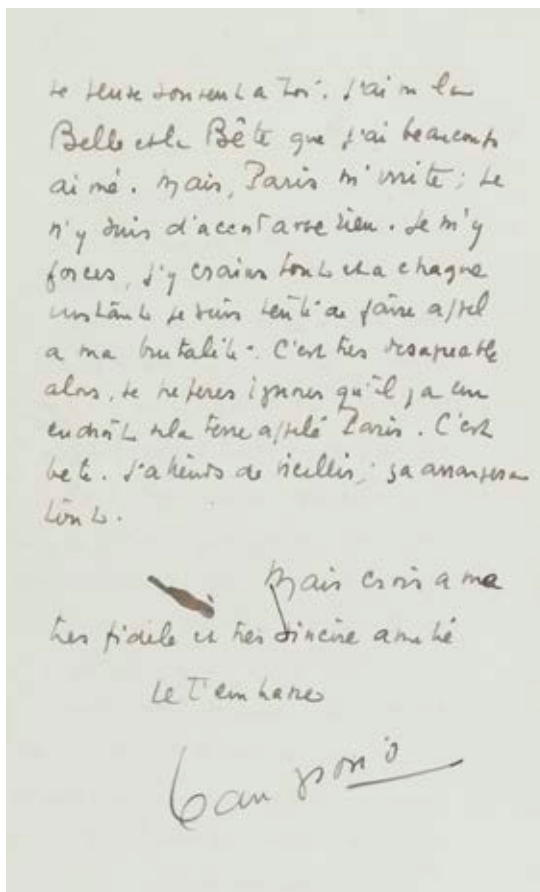 Je pense souvent a toi. J'ai vu la
Belle et la Bête que j'ai beaucoup
aimé. Mais, Paris m'irrite; je
n'y suis d'accord avec rien. Je m'y
forces, j'y crains tout et a chaque
instant je suis tenté de faire appel
a ma brutalité. C'est tres desagreable
alors, je preferes ignorer qu'il y a un
endroit sur la terre appelé Paris. C'est
bete. J'attends de vieillir, ça arrangera
tout.
Mais crois a ma
tres fidele et tres sincère amitié
Je t'embrasse
Jean Giono